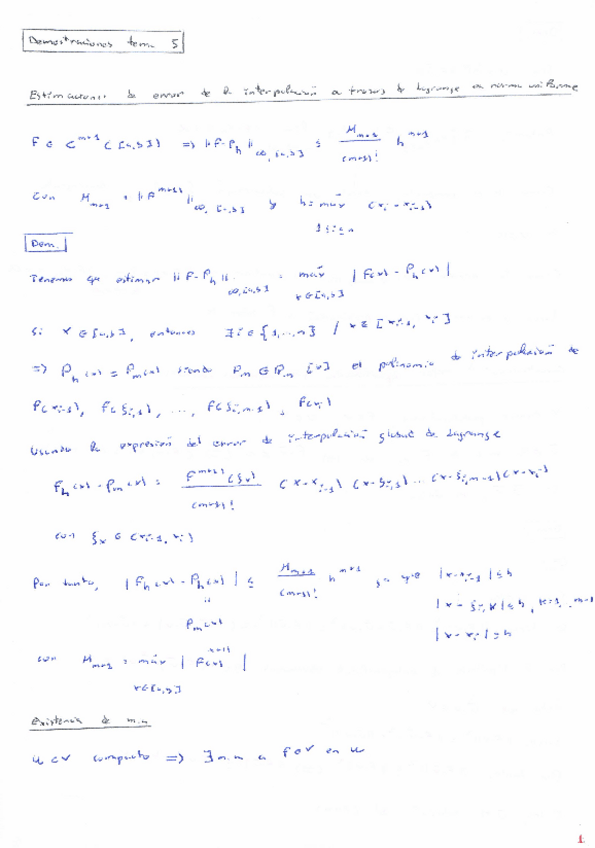 Demostraciones tema 5
Estimaciones de error de la interpolación a trozos de Lagrange en norma uniforme
F ∈ C^{m+1}([a,b]) => ||F-P_h||_{∞,[a,b]} ≤ M_{m+1}/(m+1)! h^{m+1}
con M_{m+1} = ||F^{m+1)}||_{∞,[a,b]} y h = máx_{1≤i≤n} (x_i - x_{i-1})
Dem.
Tenemos que estimar ||F-P_h||_{∞,[a,b]} = máx_{x∈[a,b]} |F(x) - P_h(x)|
Si x ∈ [a,b], entonces ∃i ∈ {1,...,n} / x ∈ [x_{i-1}, x_i]
=> P_h(x) = P_m(x) siendo P_m ∈ P_m[x] el polinomio de interpolación de
F(x_{i-1}), F(ξ_{i,1}), ..., F(ξ_{i,m-1}), F(x_i)
Usando la expresión del error de interpolación global de Lagrange
F_h(x) - P_m(x) = F^{m+1)}(ξ_x)/(m+1)! (x-x_{i-1})(x-ξ_{i,1})...(x-ξ_{i,m-1})(x-x_i)
con ξ_x ∈ (x_{i-1}, x_i)
Por tanto, |F_h(x) - P_h(x)| ≤ M_{m+1}/(m+1)! h^{m+1} ya que |x-x_{i-1}| ≤ h
|x-ξ_{i,k}| ≤ h, k=1,...,m-1
P_m(x)
|x-x_i| ≤ h
con M_{m+1} = máx_{x∈[a,b]} |F(x)^{m+1)}|
Existencia de m.a
U ⊂ V compacto => ∃ m.a a f ∈ V en U
1